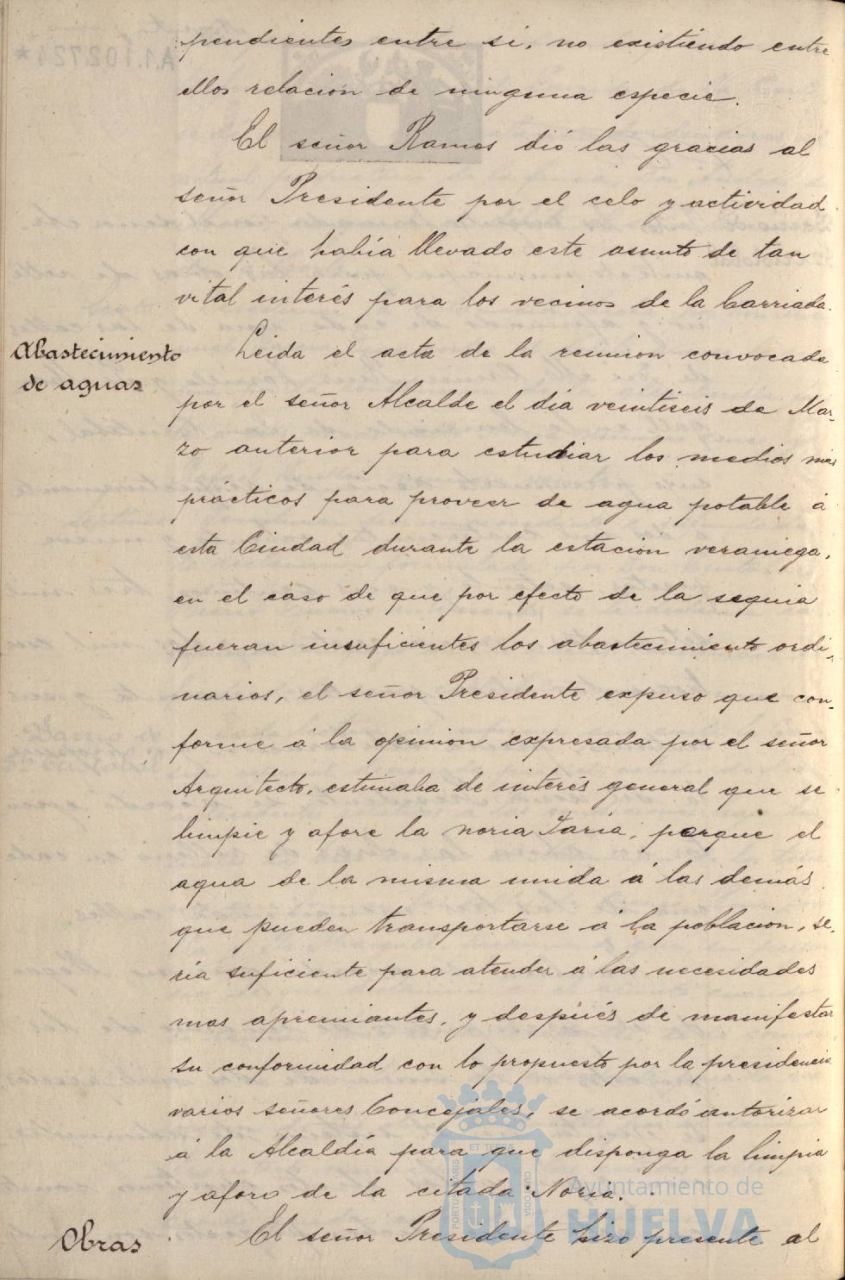 pendientes entre si, no existiendo entre
ellos relación de ninguna especie.
El señor Ramos dió las gracias al
señor Presidente por el celo y actividad
con que había llevado este asunto de tan
vital interés para los vecinos de la barriada.
Abastecimiento
de aguas
Leida el acta de la reunion convocada
por el señor Alcalde el día veintiseis de Mar-
zo anterior para estudiar los medios mas
prácticos para proveer de agua potable á
esta Ciudad durante la estación veraniega,
en el caso de que por efecto de la sequia
fueran insuficientes los abastecimiento ordi-
narios, el señor Presidente expuso que con-
forme á la opinion expresada por el señor
Arquitecto, estimaba de interés general que se
limpie y afore la noria Faria, porque el
agua de la misma unida á las demás
que pueden transportarse á la poblacion, se-
ría suficiente para atender á las necesidades
mas apremiantes, y después de manifestar
su conformidad con lo propuesto por la presidencia
varios señores Concejales, se acordó autorizar
á la Alcaldía para que disponga la limpia
y aforo de la citada Noria.
Obras
El señor Presidente hizo presente al
Ayuntamiento de
HUELVA